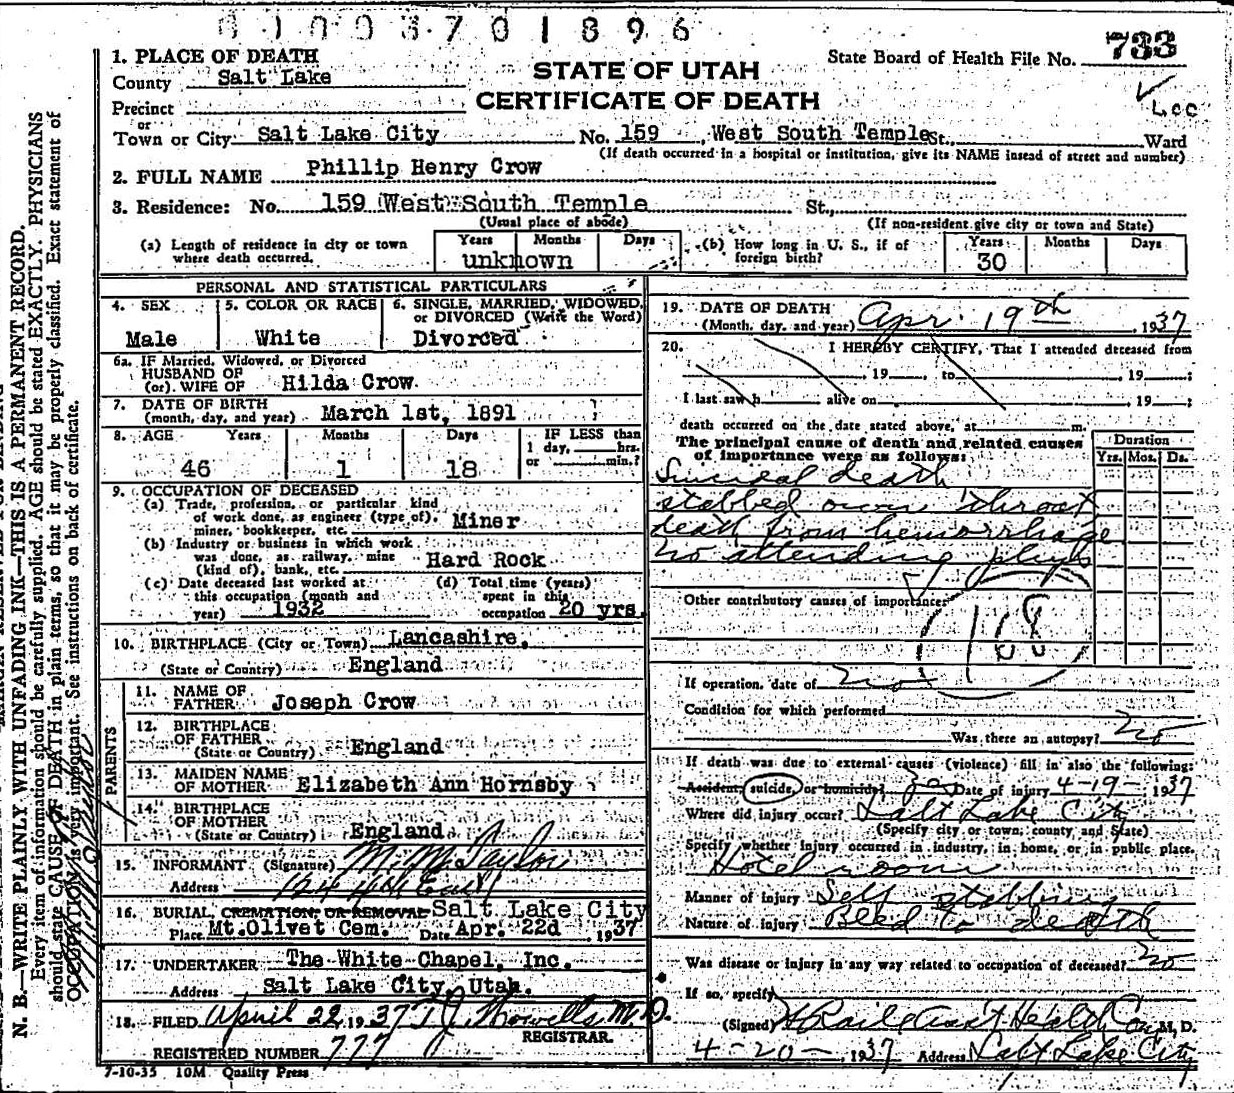 01003701896
733
1. PLACE OF DEATH
State Board of Health File No.
County Salt Lake
STATE OF UTAH
CERTIFICATE OF DEATH
Precinct
or
Town or City Salt Lake City No. 159 West South Temple St., Ward
(If death occurred in a hospital or institution, give its NAME instead of street and number)
2. FULL NAME Phillip Henry Crow
3. Residence: No. 159 West South Temple St.,
(Usual place of abode) (If non-resident give city or town and State)
(a) Length of residence in city or town where death occurred. Years Months Days
unknown
(b) How long in U. S., if of foreign birth? Years Months Days
30
PERSONAL AND STATISTICAL PARTICULARS
4. SEX 5. COLOR OR RACE 6. SINGLE, MARRIED, WIDOWED,
or DIVORCED (Write the Word)
Male White Divorced
6a. IF Married, Widowed, or Divorced
HUSBAND OF
(or) WIFE OF Hilda Crow
7. DATE OF BIRTH
(month, day, and year) March 1st, 1891
8. AGE Years Months Days IF LESS than
1 day, hrs.
or min.?
46 1 18
9. OCCUPATION OF DECEASED
(a) Trade, profession, or particular kind
of work done, as engineer (type of),
miner, bookkeeper, etc. Miner
(b) Industry or business in which work
was done, as railway, mine
(kind of), bank, etc. Hard Rock
(c) Date deceased last worked at this occupation (month and year) 1932
(d) Total time (years) spent in this occupation 20 yrs.
10. BIRTHPLACE (City or Town) Lancashire,
(State or Country) England
PARENTS
11. NAME OF
FATHER Joseph Crow
12. BIRTHPLACE
OF FATHER
(State or Country) England
13. MAIDEN NAME
OF MOTHER Elizabeth Ann Hornsby
14. BIRTHPLACE
OF MOTHER
(State or Country) England
15. INFORMANT (Signature) M. M. Taylor
Address
16. BURIAL, CREMATION, OR REMOVAL Salt Lake City
Place Mt. Olivet Cem. Date Apr. 22d 1937
17. UNDERTAKER The White Chapel, Inc.
Address Salt Lake City, Utah.
18. FILED April 22, 1937 M.D.
REGISTRAR.
REGISTERED NUMBER 777
7-10-35 10M Quality Press
19. DATE OF DEATH
(Month, day, and year) Apr. 19th, 1937
20. I HEREBY CERTIFY, That I attended deceased from
, 19 , to , 19 ;
I last saw h alive on , 19 ;
death occurred on the date stated above, at m.
The principal cause of death and related causes
of importance were as follows:
Duration
Yrs. Mos. Ds.
Suicidal death
stabbed own throat
death from hemorrhage
no attending phys
Other contributory causes of importance:
168
If operation, date of no
Condition for which performed
Was there an autopsy? no
If death was due to external causes (violence) fill in also the following:
Accident, suicide, or homicide? Date of injury 4-19-1937
Where did injury occur? Salt Lake City
(Specify city or town, county and State)
Specify whether injury occurred in industry, in home, or in public place.
Hotel room
Manner of injury Self stabbing
Nature of injury Bleed to death
Was disease or injury in any way related to occupation of deceased? no
If so, specify
(Signed) M. D.
4-20-, 1937 Address Salt Lake City
N. B.—WRITE PLAINLY WITH UNFADING INK—THIS IS A PERMANENT RECORD.
Every item of information should be carefully supplied. AGE should be stated EXACTLY. PHYSICIANS
should state CAUSE OF DEATH in plain terms, so that it may be properly classified. Exact statement of
OCCUPATION is very important. See instructions on back of certificate.